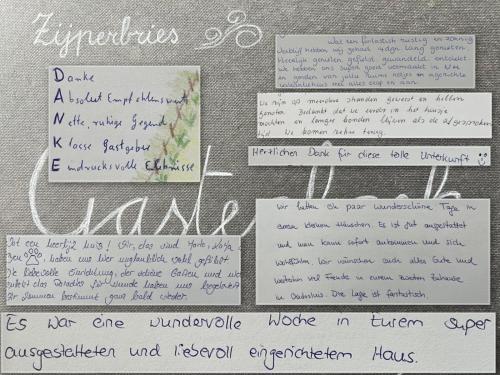 Zijperbries
Danke
Absolut Empfehlenswert
Nette, ruhige Gegend
Klasse Gastgeber
Eindrucksvolle Erlebnisse
Wat een fantastisch rustig en zonnig
verblijf hebben wij gehad. 4 dgn lang genieten
Heerlijk genoten gefietst gewandeld
we hebben ons super goed vermaakt in
en genoten van jullie
met alles erop en aan
We zijn op meerdere stranden geweest en hebben
genoten. Bedankt dat we eerder in het huisje
mochten en langer konden blijven als de afgesproken
tijd. We komen zeker terug.
Herzlichen Dank für diese tolle Unterkunft
Gastenboek
Wir hatten ein paar wunderschöne Tage in
eurem kleinen Häuschen. Es ist gut ausgestattet
und man kann sofort ankommen und sich
wohlfühlen. Wir wünschen euch alles Gute und
weiterhin viel Freude in eurem zweiten Zuhause
in Oudesluis. Die Lage ist fantastisch.
Wat een heerlijk huis! Wir, das sind
haben uns hier unglaublich wohl gefühlt.
Die liebevolle Einrichtung, der schöne Garten und
zuletzt das Paradies für Hunde haben uns begeistert.
Wir kommen bestimmt ganz bald wieder.
Es war eine wundervolle Woche in Eurem super
ausgestatteten und liebevoll eingerichtetem Haus.